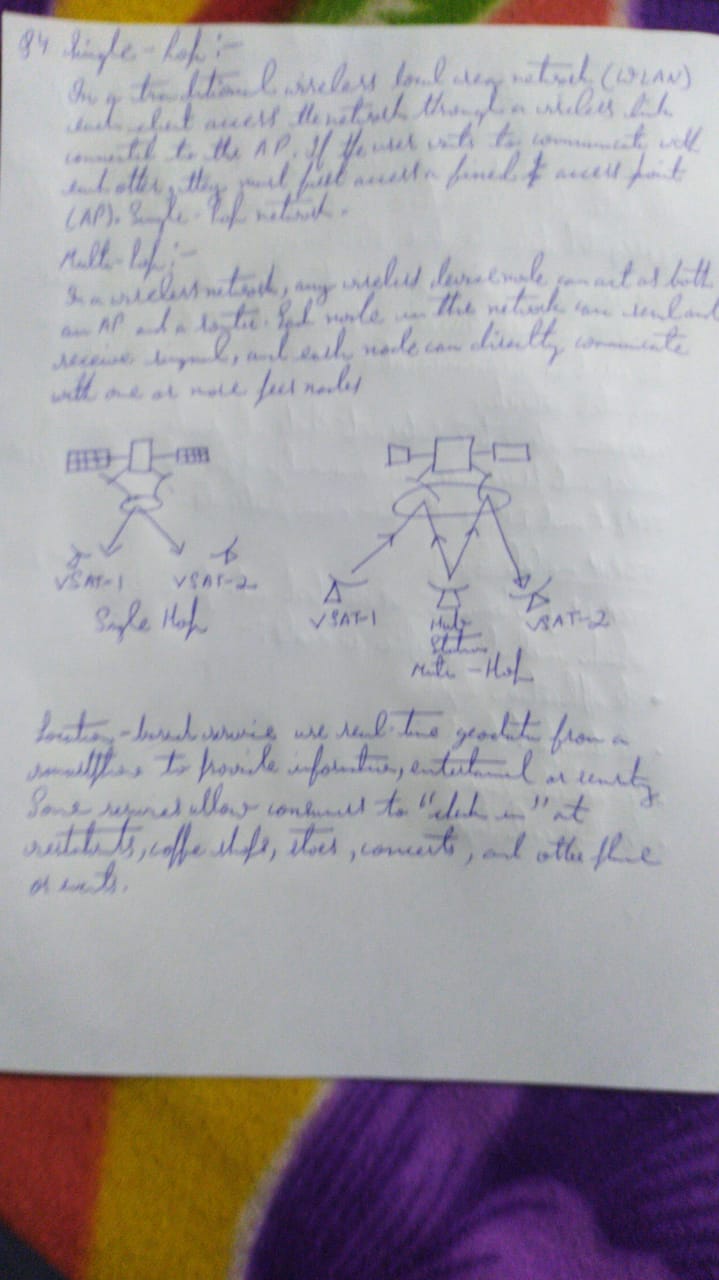 Q4 Single-hop :-
In a traditional wireless local area network (WLAN)
each client access the network through a wireless link
connected to the AP. If the user wants to communicate with
each other, they must first access a fixed access point
(AP). Single-hop network.
Multi-hop :-
In a wireless network, any wireless device node can act as both
an AP and a router. Each node in the network can send and
receive signals, and each node can directly communicate
with one or more peer nodes
VSAT-1 VSAT-2
Single Hop
VSAT-1 Hub VSAT-2
Station
Multi-Hop
Location-based service use real-time geodata from a
smartphone to provide information, entertainment or security
Some services allow consumers to "check in" at
restaurants, coffee shops, stores, concerts, and other place
or events.